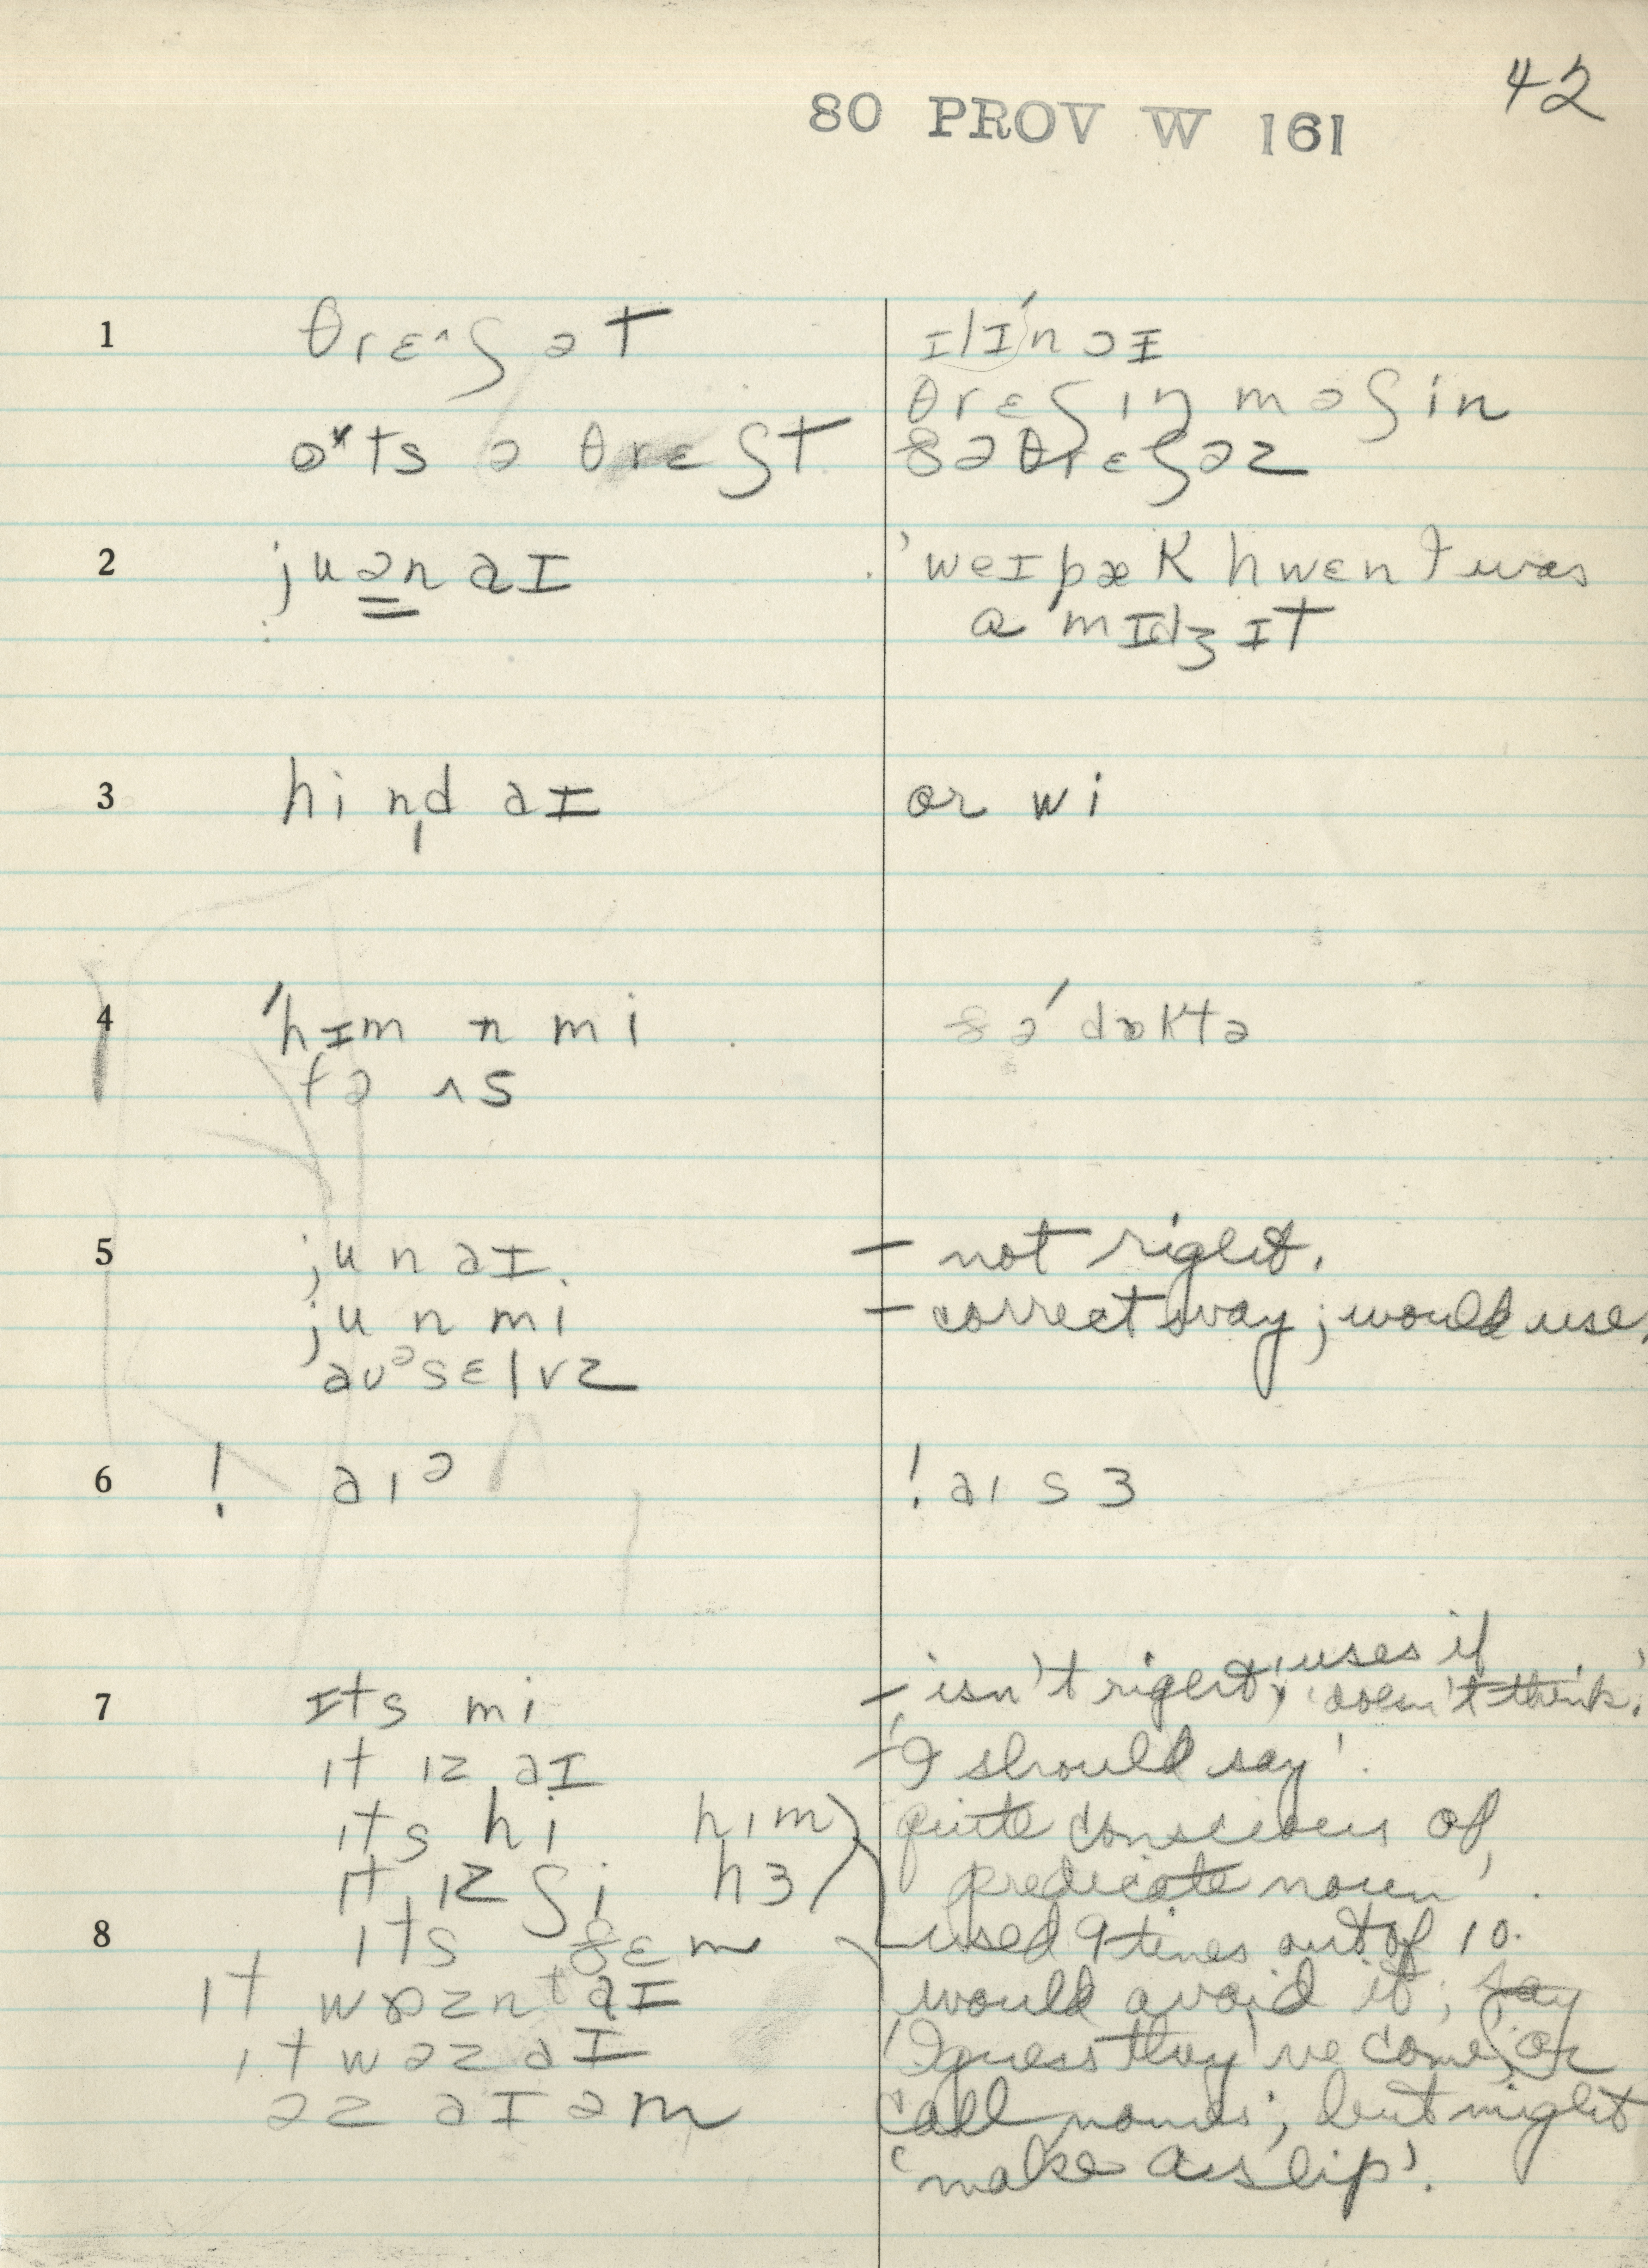 42
80 PROV W 161
1 θrɛ^ʃət ɪlɪ́nɔɪ
θrɛʃɪŋ məʃin
o^ts ə θrɛʃt ðə θrɛʃəz
2 ju ən aɪ 'weɪ bæk hwɛn I was
a 'mɪdʒɪt
3 hi n̩d aɪ or wi
4 'hɪm n mi ðə 'dɒktə
fə ʌs
5 ju n aɪ. – not right.
ju n mi – correct way; would use.
aʊᵊsɛlvz
6 ! aɪᵊ ! aɪ s ɜ
uses if
7 ɪts mi – 'isn't right'; 'doesn't think.'
ɪt ɪz aɪ – 'I should say'.
ɪts hi hɪm quite conscious of
ɪt ɪz ʃi hɜ 'predicate noun'.
8 ɪts ðɛm used 9 times out of 10.
ɪt wɒznt aɪ would avoid it; say
ɪt wəz aɪ 'I guess they've come', or
əz aɪ əm call names; but might
'make a slip'.